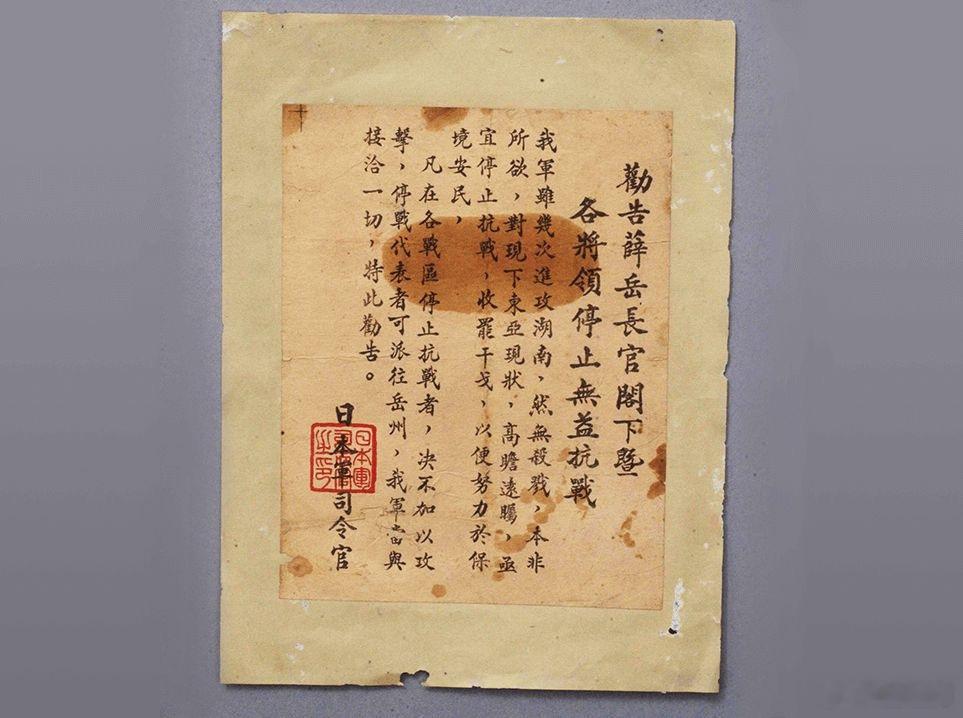 勸告薛岳長官閣下暨
各將領停止無益抗戰
我軍雖幾次進攻湖南，然無殺戮，本非
所欲，對現下東亞現狀，高瞻遠矚，亟
宜停止抗戰，收罷干戈，以便努力於保
境安民，
凡在各戰區停止抗戰者，決不加以攻
擊，停戰代表者可派往岳州，我軍當與
接洽一切，特此勸告。
日本軍司令官